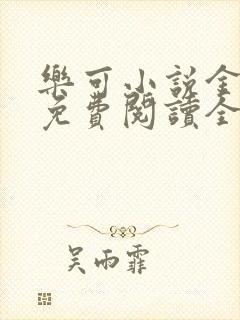 樂可小說全
免費閱讀全
吳雨霏